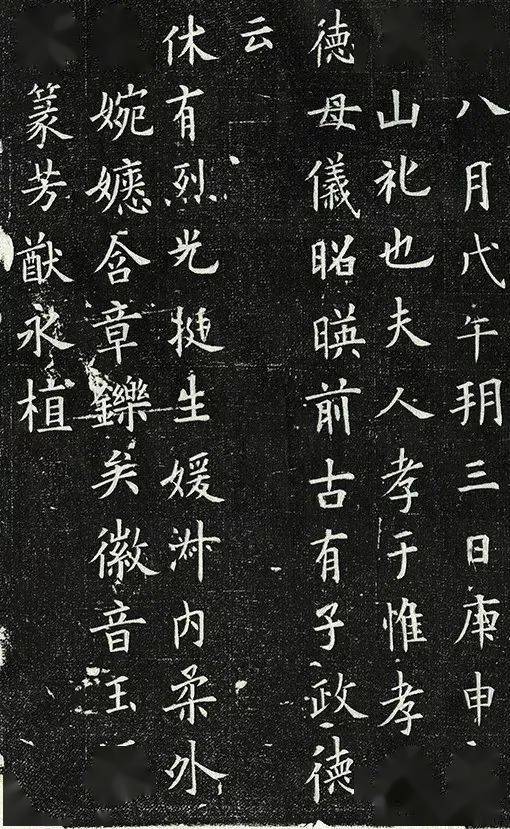 八月戊午朔三日庚申
山礼也夫人孝于惟孝
德母儀昭暎前古有子政德
云
休有烈光挺生媛淑内柔外
婉嫕含章鑠矣徽音玉
篆芳猷永植